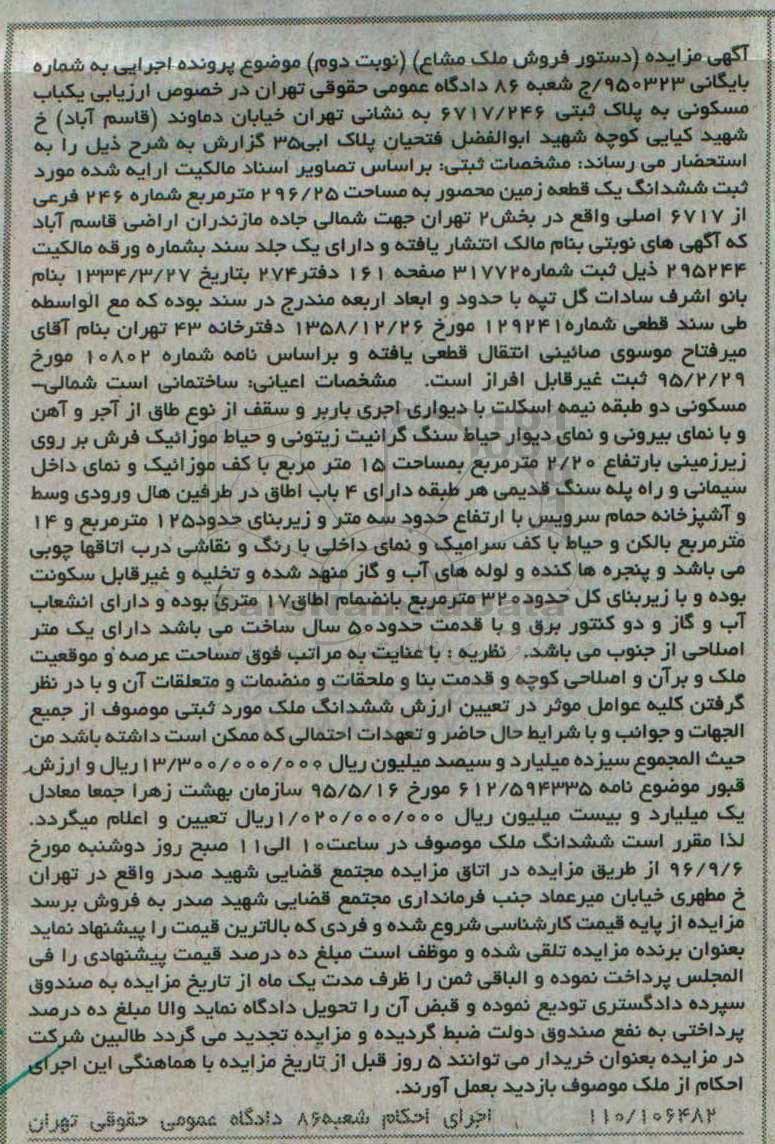 آگهی مزایده (دستور فروش ملک مشاع) (نوبت دوم) موضوع پرونده اجرایی به شماره
بایگانی ۹۵۰۳۲۳/ج شعبه ۸۶ دادگاه عمومی حقوقی تهران در خصوص ارزیابی یکباب
مسکونی به پلاک ثبتی ۶۷۱۷/۲۴۶ به نشانی تهران خیابان دماوند (قاسم آباد) خ
شهید کیایی کوچه شهید ابوالفضل فتحیان پلاک ابی۳۵ گزارش به شرح ذیل را به
استحضار می رساند: مشخصات ثبتی: براساس تصاویر اسناد مالکیت ارایه شده مورد
ثبت ششدانگ یک قطعه زمین محصور به مساحت ۲۹۶/۲۵ مترمربع شماره ۲۴۶ فرعی
از ۶۷۱۷ اصلی واقع در بخش۲ تهران جهت شمالی جاده مازندران اراضی قاسم آباد
که آگهی های نوبتی بنام مالک انتشار یافته و دارای یک جلد سند بشماره ورقه مالکیت
۲۹۵۲۴۴ ذیل ثبت شماره۳۱۷۷۲ صفحه ۱۶۱ دفتر۲۷۴ بتاریخ ۱۳۳۴/۳/۲۷ بنام
بانو اشرف سادات گل تپه با حدود و ابعاد اربعه مندرج در سند بوده که مع الواسطه
طی سند قطعی شماره۱۲۹۲۴۱ مورخ ۱۳۵۸/۱۲/۲۶ دفترخانه ۴۳ تهران بنام آقای
میرفتاح موسوی صائینی انتقال قطعی یافته و براساس نامه شماره ۱۰۸۰۲ مورخ
۹۵/۲/۲۹ ثبت غیرقابل افراز است. مشخصات اعیانی: ساختمانی است شمالی-
مسکونی دو طبقه نیمه اسکلت با دیواری اجری باربر و سقف از نوع طاق از آجر و آهن
و با نمای بیرونی و نمای دیوار حیاط سنگ گرانیت زیتونی و حیاط موزائیک فرش بر روی
زیرزمینی بارتفاع ۲/۲۰ مترمربع بمساحت ۱۵ متر مربع با کف موزائیک و نمای داخل
سیمانی و راه پله سنگ قدیمی هر طبقه دارای ۴ باب اطاق در طرفین هال ورودی وسط
و آشپزخانه حمام سرویس با ارتفاع حدود سه متر و زیربنای حدود۱۲۵ مترمربع و ۱۴
مترمربع بالکن و حیاط با کف سرامیک و نمای داخلی با رنگ و نقاشی درب اتاقها چوبی
می باشد و پنجره ها کنده و لوله های آب و گاز منهد شده و تخلیه و غیرقابل سکونت
بوده و با زیربنای کل حدود۳۲۰ مترمربع بانضمام اطاق۱۷ متری بوده و دارای انشعاب
آب و گاز و دو کنتور برق و با قدمت حدود۵۰ سال ساخت می باشد دارای یک متر
اصلاحی از جنوب می باشد. نظریه : با عنایت به مراتب فوق مساحت عرصه و موقعیت
ملک و برآن و اصلاحی کوچه و قدمت بنا و ملحقات و منضمات و متعلقات آن و با در نظر
گرفتن کلیه عوامل موثر در تعیین ارزش ششدانگ ملک مورد ثبتی موصوف از جمیع
الجهات و جوانب و با شرایط حال حاضر و تعهدات احتمالی که ممکن است داشته باشد من
حیث المجموع سیزده میلیارد و سیصد میلیون ریال ۱۳/۳۰۰/۰۰۰/۰۰۰ریال و ارزش
قبور موضوع نامه ۶۱۲/۵۹۴۳۳۵ مورخ ۹۵/۵/۱۶ سازمان بهشت زهرا جمعا معادل
یک میلیارد و بیست میلیون ریال ۱/۰۲۰/۰۰۰/۰۰۰ریال تعیین و اعلام میگردد.
لذا مقرر است ششدانگ ملک موصوف در ساعت۱۰ الی۱۱ صبح روز دوشنبه مورخ
۹۶/۹/۶ از طریق مزایده در اتاق مزایده مجتمع قضایی شهید صدر واقع در تهران
خ مطهری خیابان میرعماد جنب فرمانداری مجتمع قضایی شهید صدر به فروش برسد
مزایده از پایه قیمت کارشناسی شروع شده و فردی که بالاترین قیمت را پیشنهاد نماید
بعنوان برنده مزایده تلقی شده و موظف است مبلغ ده درصد قیمت پیشنهادی را فی
المجلس پرداخت نموده و الباقی ثمن را ظرف مدت یک ماه از تاریخ مزایده به صندوق
سپرده دادگستری تودیع نموده و قبض آن را تحویل دادگاه نماید والا مبلغ ده درصد
پرداختی به نفع صندوق دولت ضبط گردیده و مزایده تجدید می گردد طالبین شرکت
در مزایده بعنوان خریدار می توانند ۵ روز قبل از تاریخ مزایده با هماهنگی این اجرای
احکام از ملک موصوف بازدید بعمل آورند.
۱۱۰/۱۰۶۴۸۲ اجرای احکام شعبه۸۶ دادگاه عمومی حقوقی تهران